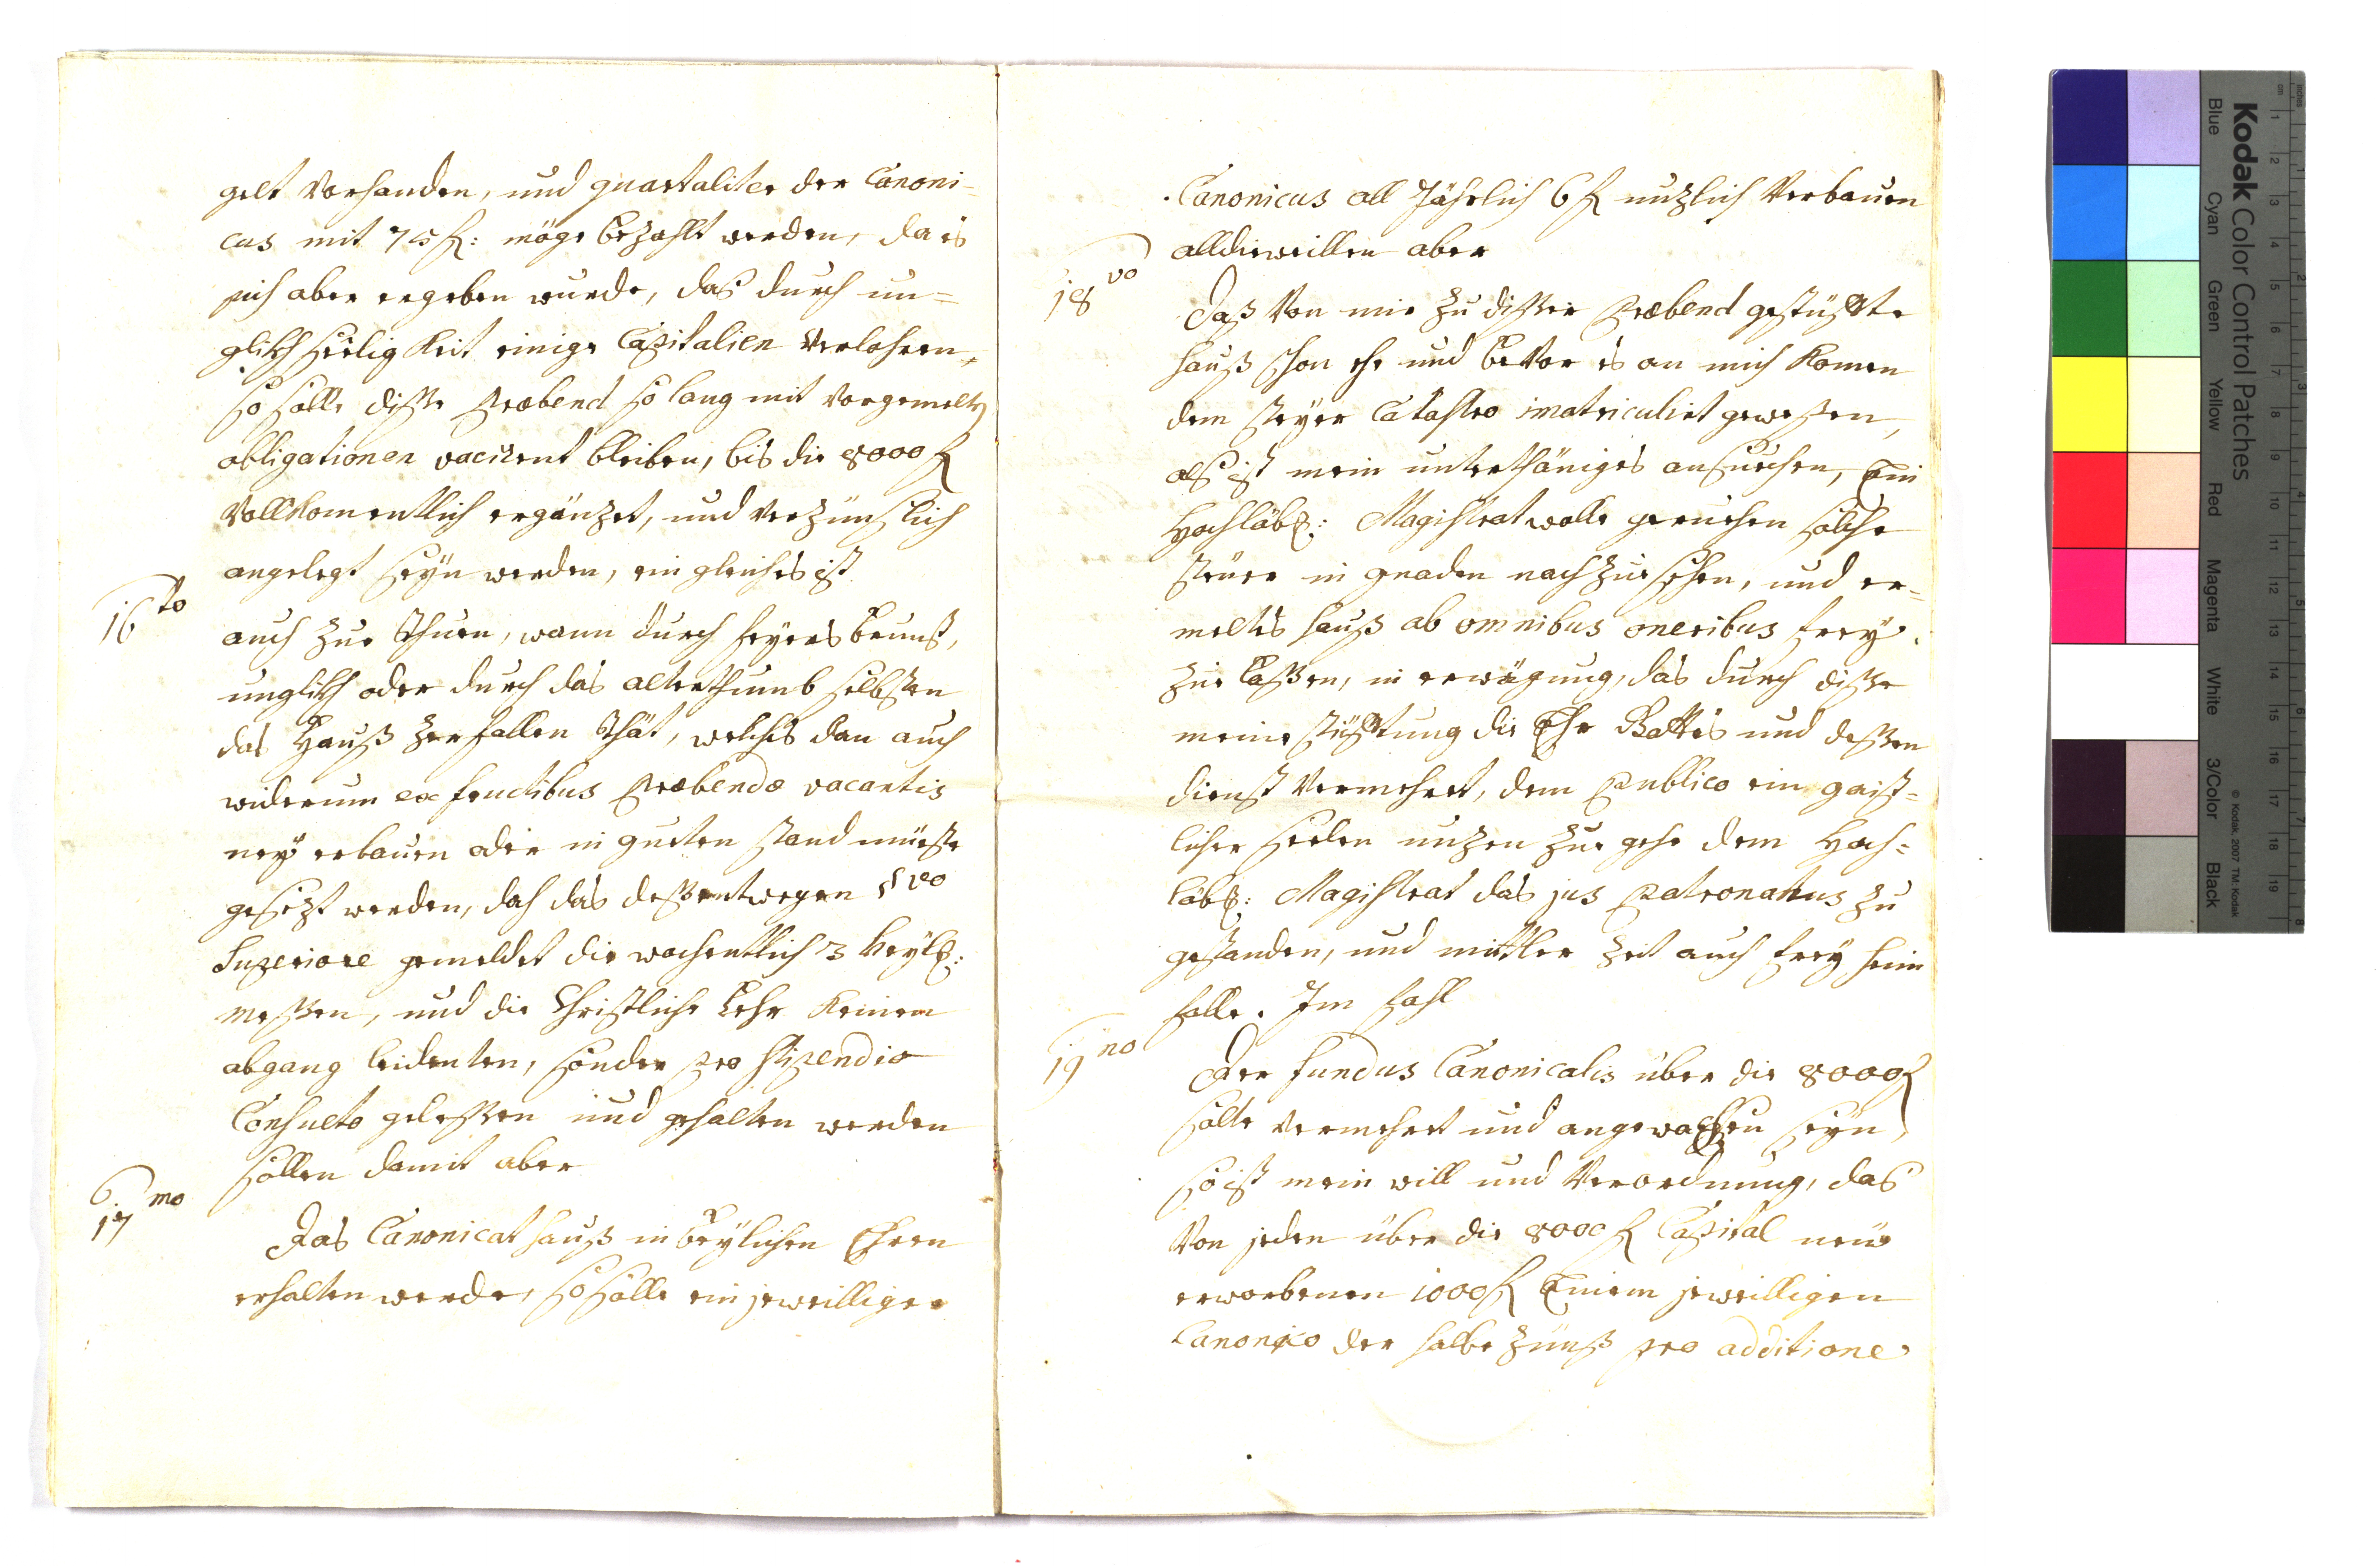 gelt vorhanden, und quartaliter der Canoni-
cus mit 75 f: möge bezahlt werden, da es
sich aber ergeben wurde, das durch un-
glikhseeligkeit einige Capitalien verlohren,
so solle disse Præbend so lang mit vorgemelten
obligationen vacirent bleiben, bis die 8000 f
vollkomentlich ergänzet, und verzünslich
angelegt seyn werden, ein gleiches ist
16to
auch zue thuen, wann durch feyers brunst,
unglikh oder durch das alterthumb selbsten
das Hauß zerfallen thät, welches dan auch
widerum ex fructibus Præbendæ vacantis
ney erbauen oder in gueten stand müeste
gesezt werden, doch das dessentwegen §vo
Superiore gemeldet die wochentlich 3 heyl:
messen, und die Christliche Lehr keinen
abgang leidenten, sonder pro stipendio
Consueto gelessen und gehalten werden
sollen damit aber
17mo
Das Canonicat hauß in beylichen Ehren
erhalten werde, so solle ein jeweilliger
Canonicus all Jährlich 6 f nuzlich verbauen
alldieweillen aber
18vo
Daß von mir zu disser Præbend gestüffte
hauß schon ehe und bevor es an mich komen
dem steyer Catastro imatriculirt gewessen,
als ist mein unterthäniges ansuechen, Ein
Hochlöbl: Magistrat wolle geruehen solche
steuer in gnaden nachzuesehen, und er-
meltes hauß ab omnibus oneribus frey
zue lassen, in erwägung, das durch disse
meine stüfftung die Ehr Gottes und dessen
dienst vermehrt, dem Publico ein geist-
licher Seelen nuzen zue gehe dem Hoch-
löbl: Magistrat das jus Patronatus zu
gestanden, und mittler zeit auch frey heim
falle. Im fahl
19no
Der fundus Canonicalis über die 8000 f
solte vermehrt und angewachsen seyn,
so ist mein will und Verordnung, das
von jeden über die 8000 f Capital neu
erworbenen 1000 f Einem jeweilligen
Canonico der halbe zünß pro additione
Kodak Color Control Patches
Blue Cyan Green Yellow Red Magenta White 3/Color Black
© Kodak, 2007 TM: Kodak
inches 1 2 3 4 5 6 7 8
cm 1 2 3 4 5 6 7 8 9 10 11 12 13 14 15 16 17 18 19